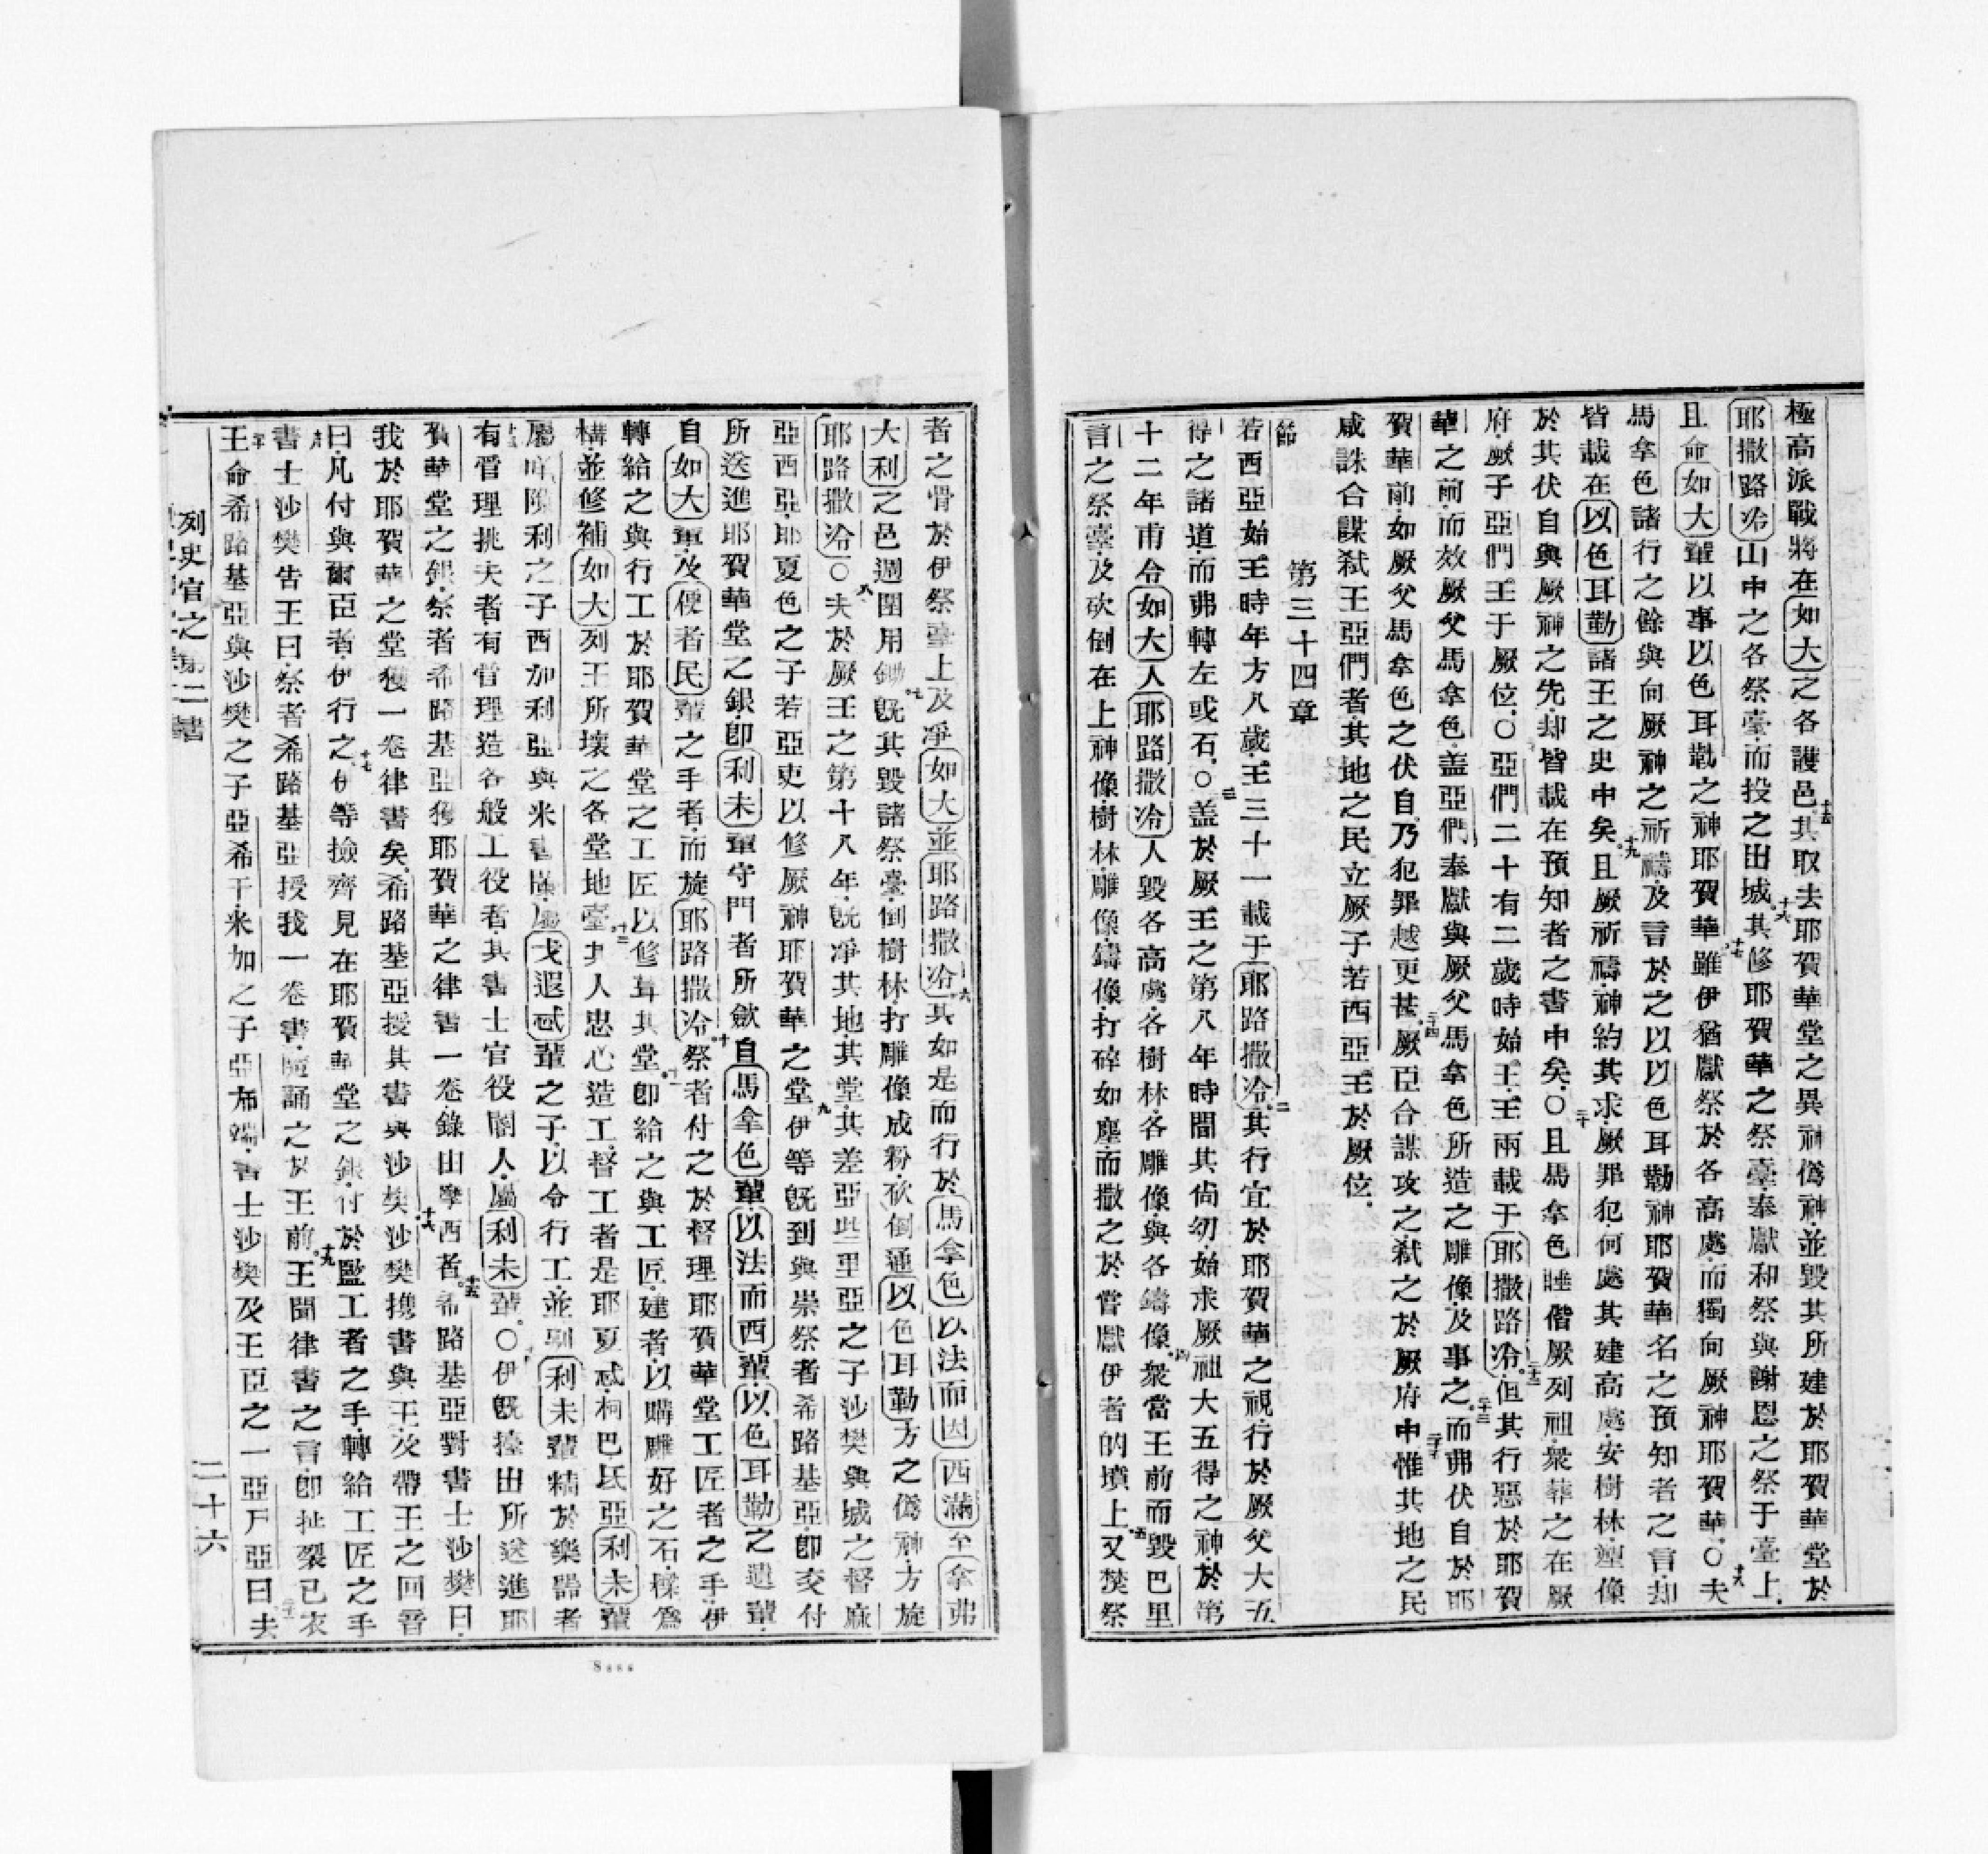 極高派戰將在如大之各護邑十五其取去耶賀華堂之異神偽神並毀其所建於耶賀華堂於
耶撒路冷山中之各祭臺而投之出城十六其修耶賀華之祭臺奉獻和祭與謝恩之祭于臺上
且命如大輩以事以色耳勒之神耶賀華十七雖伊猶獻祭於各高處而獨向厥神耶賀華○十八夫
馬拿色諸行之餘與向厥神之祈禱及言於之以以色耳勒神耶賀華名之預知者之言却
皆載在以色耳勒諸王之史中矣十九且厥祈禱神約其求厥罪犯何處其建高處安樹林塑像
於其伏自與厥神之先却皆載在預知者之書中矣○二十且馬拿色睡偕厥列祖衆葬之在厥
府厥子亞們王于厥位○亞們二十有二歲時始王王兩載于耶撒路冷二十二但其行惡於耶賀
華之前而效厥父馬拿色盖亞們奉獻與厥父馬拿色所造之雕像及事之二十三而弗伏自於耶
賀華前如厥父馬拿色之伏自乃犯罪越更甚二十四厥臣合謀攻之弒之於厥府中二十五惟其地之民
咸誅合謀弒王亞們者其地之民立厥子若西亞王於厥位
第三十四章
節
若西亞始王時年方八歲王三十一載于耶路撒冷二其行宜於耶賀華之視行於厥父大五
得之諸道而弗轉左或石○三盖於厥王之第八年時間其尚幼始求厥祖大五得之神於第
十二年甫令如大人耶路撒冷人毀各高處各樹林各雕像與各鑄像四衆當王前而毀巴里
言之祭臺及砍倒在上神像樹林雕像鑄像打碎如塵而撒之於嘗獻伊者的墳上五又焚祭
者之骨於伊祭臺上及凈如大並耶路撒冷六其如是而行於馬拿色以法而因西滿至拿弗
大利之邑週圍用鋤七既其毀諸祭臺倒樹林打雕像成粉砍倒通以色耳勒方之偽神方旋
耶路撒冷○八夫於厥王之第十八年既凈其地其堂其差亞些里亞之子沙樊與城之督麻
亞西亞耶夏色之子若亞吏以修厥神耶賀華之堂九伊等既到與崇祭者希路基亞即交付
所送進耶賀華堂之銀即利未輩守門者所歛自馬拿色輩以法而西輩以色耳勒之遺輩
自如大輩及便者民輩之手者而旋耶路撒冷十祭者付之於督理耶賀華堂工匠者之手伊
轉給之與行工於耶賀華堂之工匠以修葺其堂十一即給之與工匠建者以購雕好之石樑爲
構並修補如大列王所壞之各堂地臺十二其人忠心造工督工者是耶夏忒柯巴氐亞利未輩
屬咩隙利之子西加利亞與米書闌屬戈遐忒輩之子以令行工並別利未輩精於樂器者
有管理挑夫者有管理造各般工役者其書士官役閽人屬利未輩○伊既擡出所送進耶
賀華堂之銀祭者希路基亞獲耶賀華之律書一卷錄由摩西者十五希路基亞對書士沙樊曰
我於耶賀華之堂獲一卷律書矣希路基亞授其書與沙樊十六沙樊携書與王及帶王之回音
曰凡付與爾臣者伊行之十七伊等撿齊見在耶賀華堂之銀付於監工者之手轉給工匠之手
書士沙樊告王曰祭者希路基亞授我一卷書隨誦之於王前十九王聞律書之言即扯裂已衣
王命希路基亞與沙樊之子亞希干米加之子亞布端書士沙樊及王臣之一亞尸亞曰夫
列史官之第二書
二十六